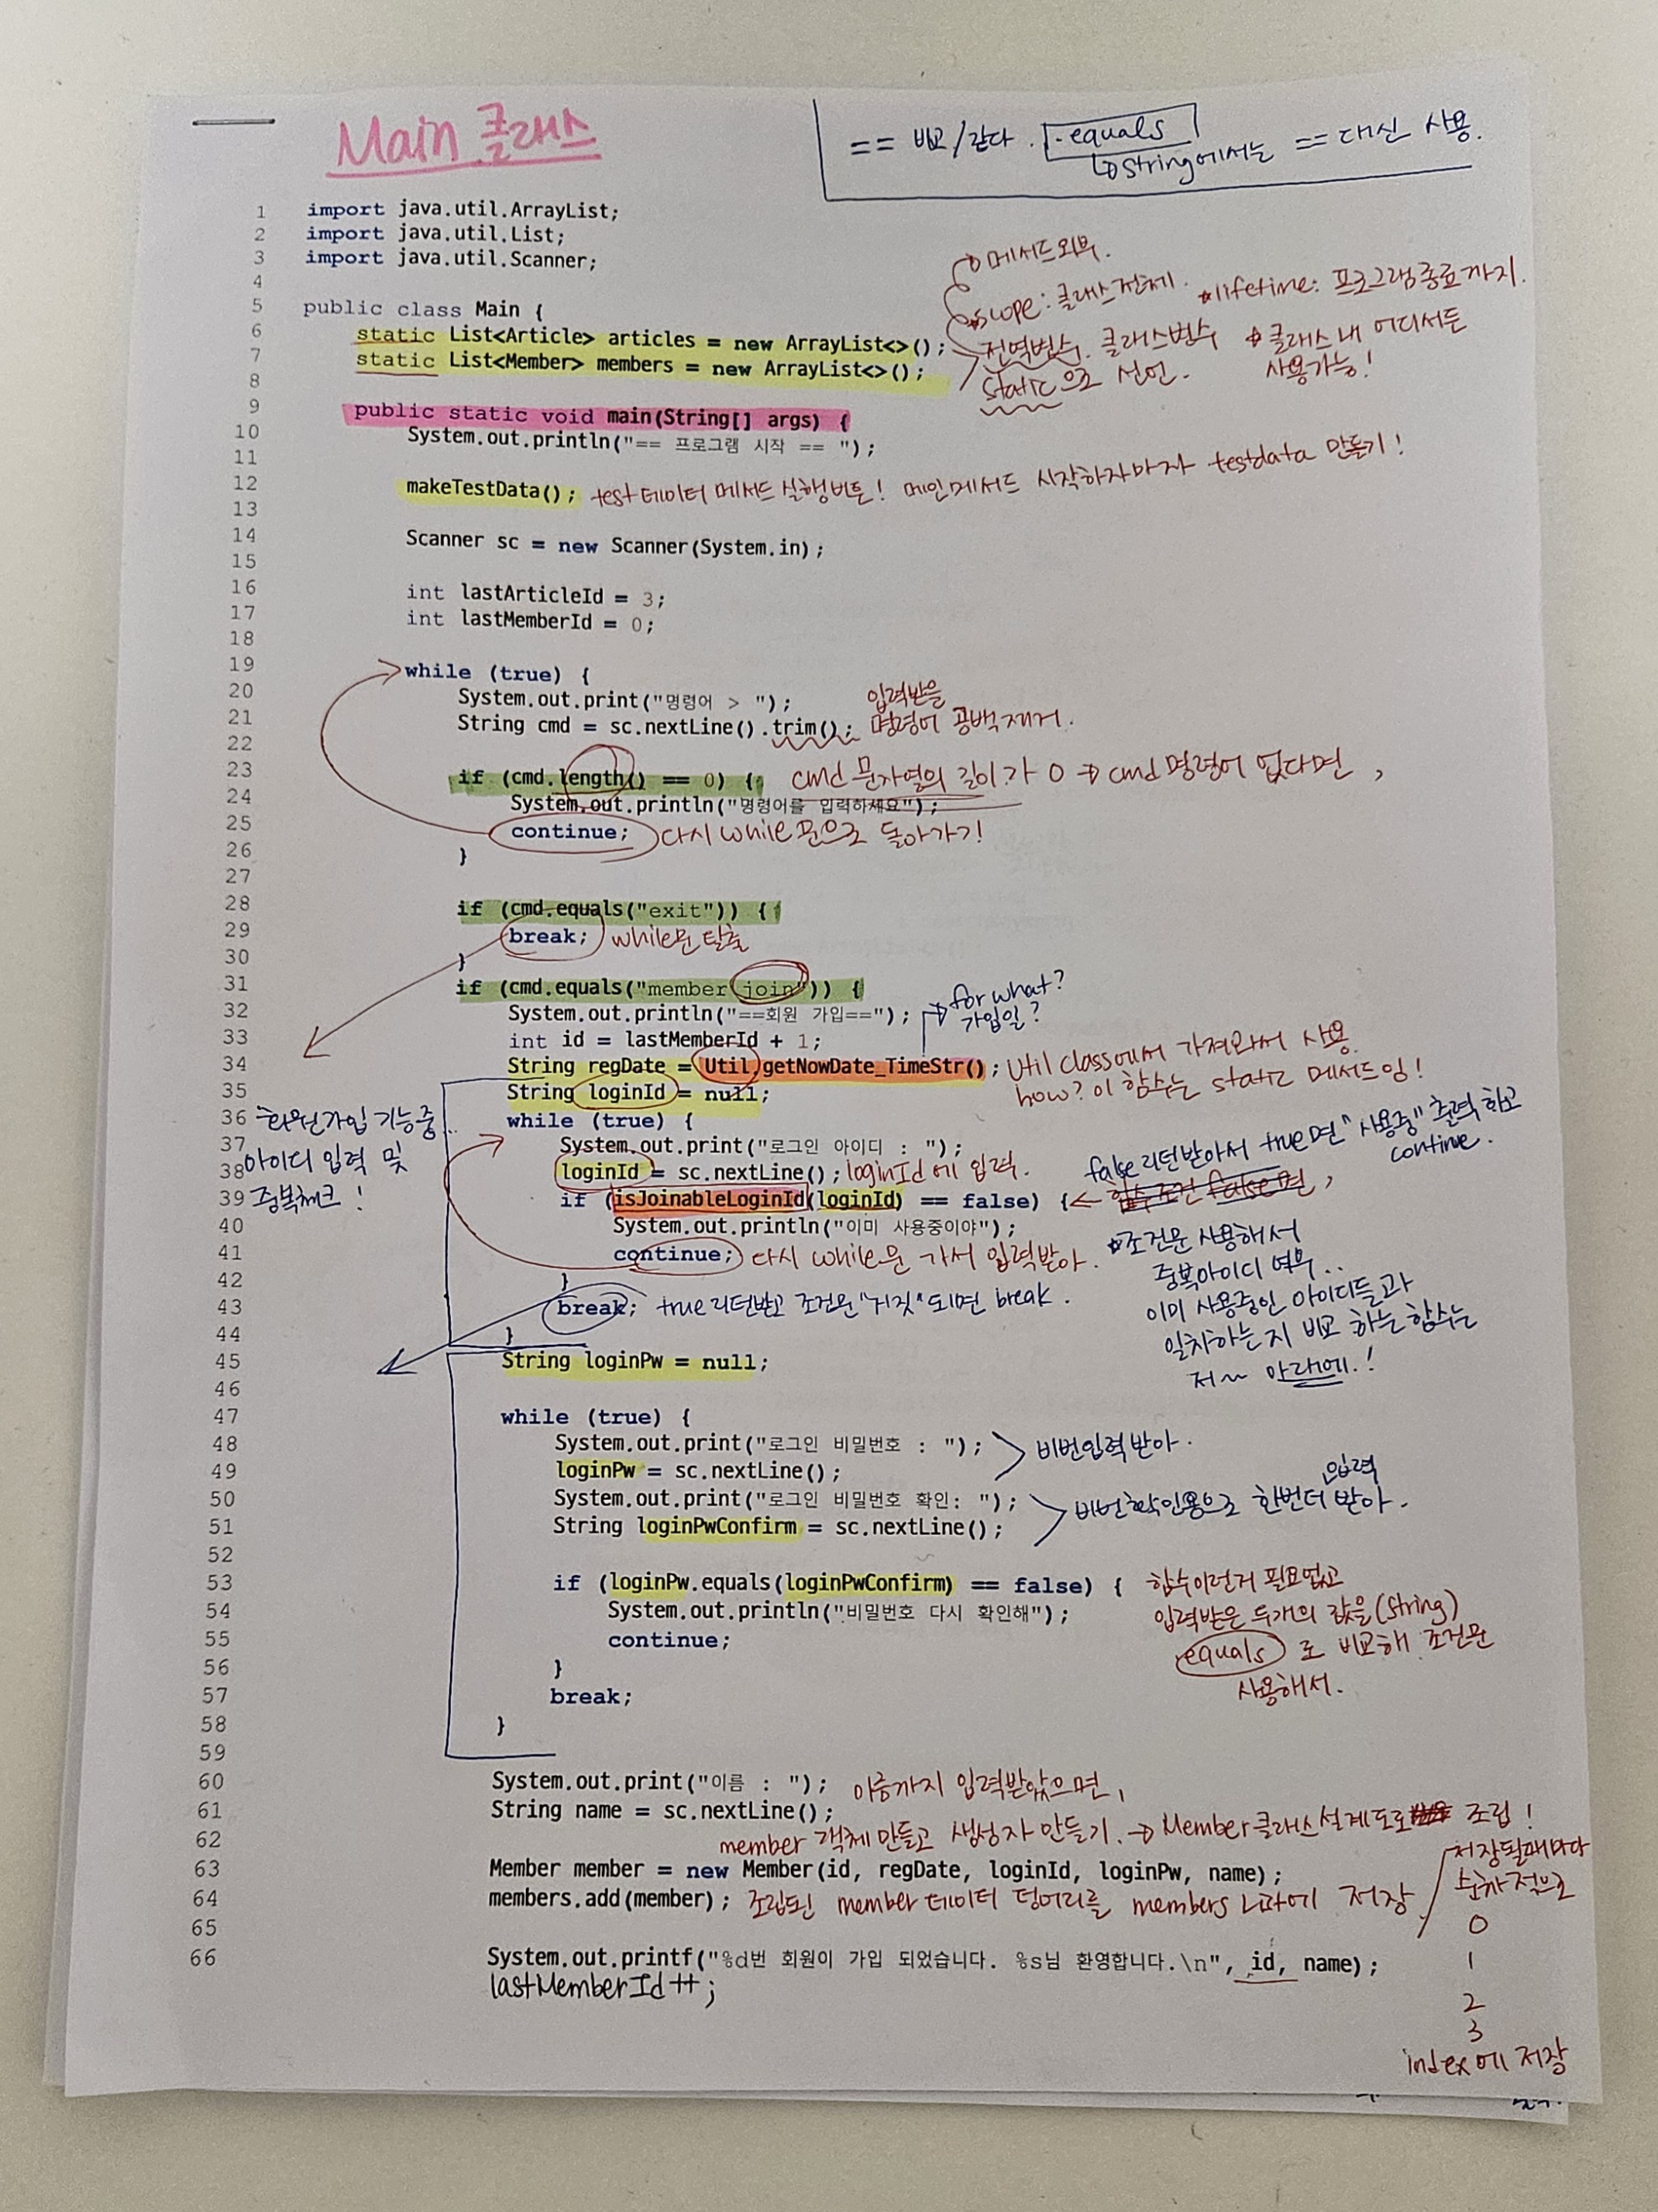 Main 클래스
== 비교/같다. .equals
↳string에서는 == 대신 사용.
1 import java.util.ArrayList;
2 import java.util.List;
3 import java.util.Scanner;
4
→메서드외부.
5 public class Main {
*scope: 클래스전체. *lifetime: 프로그램종료까지.
6 static List<Article> articles = new ArrayList<>();
전역변수. 클래스변수 *클래스 내 어디서든
7 static List<Member> members = new ArrayList<>();
static으로 선언. 사용가능!
8
9 public static void main(String[] args) {
10 System.out.println("== 프로그램 시작 == ");
11
12 makeTestData(); test데이터 메서드 실행버튼! 메인메서드 시작하자마자 testdata 만들기!
13
14 Scanner sc = new Scanner(System.in);
15
16 int lastArticleId = 3;
17 int lastMemberId = 0;
18
19 while (true) {
20 System.out.print("명령어 > "); 입력받을
21 String cmd = sc.nextLine().trim(); 명령어 공백제거.
22
23 if (cmd.length() == 0) { cmd 문자열의 길이가 0 → cmd 명령어 없다면,
24 System.out.println("명령어를 입력하세요");
25 continue; 다시 while문으로 돌아가기!
26 }
27
28 if (cmd.equals("exit")) {
29 break; while문 탈출
30 }
31 if (cmd.equals("member join")) {
32 System.out.println("==회원 가입=="); →for what?
가입일?
33 int id = lastMemberId + 1;
34 String regDate = Util.getNowDate_TimeStr(); Util class에서 가져와서 사용
35 String loginId = null; how? 이 함수는 static 메서드임!
36 while (true) {
회원가입 기능중
37 System.out.print("로그인 아이디 : ");
38 loginId = sc.nextLine(); loginId에 입력.
아이디 입력 및
false리턴받아서 true면 "사용중" 출력하고
continue.
39 if (isJoinableLoginId(loginId) == false) { ← 함수조건 false면,
중복체크!
40 System.out.println("이미 사용중이야");
41 continue; 다시 while문 가서 입력받아.
*조건문 사용해서
중복아이디 여부..
이미 사용중인 아이디들과
일치하는지 비교 하는 함수는
저~ 아래에.!
42 }
43 break; true리턴받고 조건문 "거짓" 되면 break.
44 }
45 String loginPw = null;
46
47 while (true) {
48 System.out.print("로그인 비밀번호 : "); 비번입력받아.
49 loginPw = sc.nextLine();
50 System.out.print("로그인 비밀번호 확인: "); 비번확인용으로 한번더 입력 받아.
51 String loginPwConfirm = sc.nextLine();
52
53 if (loginPw.equals(loginPwConfirm) == false) { 함수이런거 필요없고
54 System.out.println("비밀번호 다시 확인해"); 입력받은 두개의 값을(String)
55 continue; equals로 비교해 조건문
56 } 사용해서.
57 break;
58 }
59
60 System.out.print("이름 : "); 이름까지 입력받았으면,
61 String name = sc.nextLine();
62 member 객체만들고 생성자 만들기. → Member클래스설계도로 조립!
63 Member member = new Member(id, regDate, loginId, loginPw, name);
64 members.add(member); 조립된 member데이터 덩어리를 members 에 저장
65
저장될때마다
순차적으로
0
1
2
3
index에 저장
66 System.out.printf("%d번 회원이 가입 되었습니다. %s님 환영합니다.\n", id, name);
lastMemberId++;